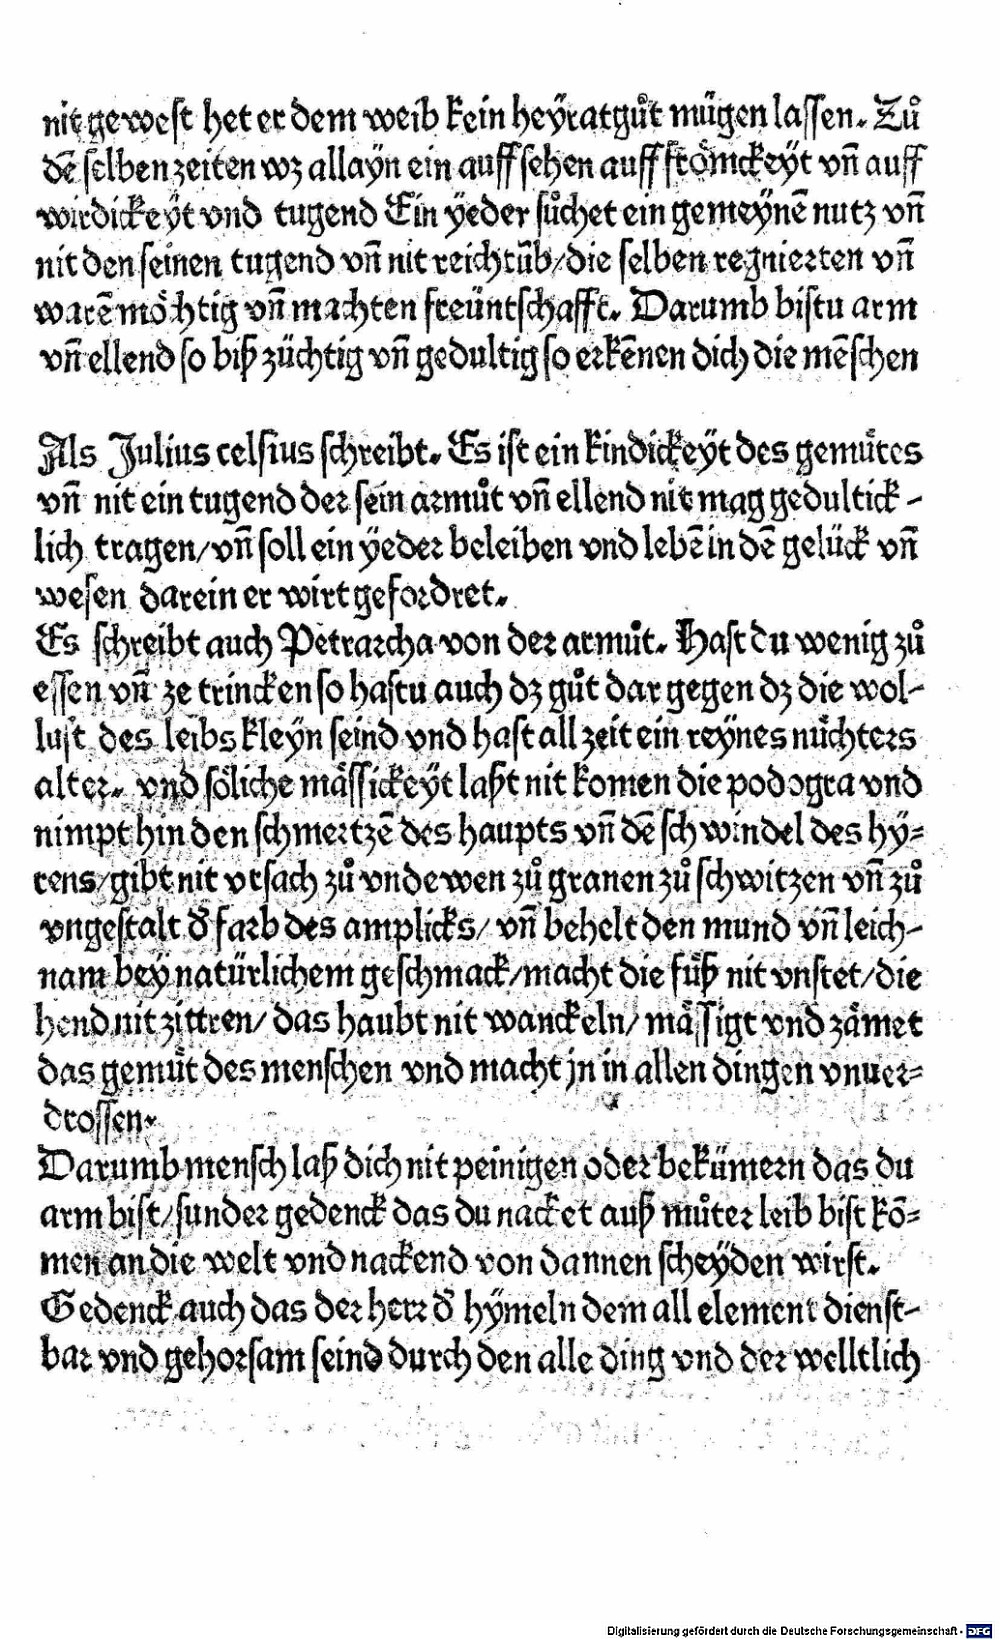 nit gewest het er dem weib kein heÿratgůt mügen lassen. Zů
dē selben zeiten wz allaÿn ein auff sehen auff frömckeÿt vñ auff
wirdickeÿt vnd tugend Ein ÿeder sůchet ein gemeÿnē nutz vñ
nit den seinen tugend vñ nit reichtūb/die selben regnierten vñ
warē möchtig vñ machten freüntschafft. Darumb bistu arm
vñ ellend so biß züchtig vñ gedultig so erkēnen dich die mēschen
Als Julius celsius schreibt. Es ist ein kindickeÿt des gemütes
vñ nit ein tugend der sein armůt vñ ellend nit mag gedultick-
lich tragen/vñ soll ein ÿeder beleiben vnd lebē in dē gelück vñ
wesen darein er wirt gefordret.
Es schreibt auch Petrarcha von der armůt. Hast du wenig zů
essen vñ ze trincken so hastu auch dz gůt dar gegen dz die wol-
lust des leibs kleÿn seind vnd hast all zeit ein reÿnes nüchters
alter. vnd söliche mässickeÿt laßt nit komen die podogra vnd
nimpt hin den schmertzē des haupts vñ dē schwindel des hÿ-
rens/gibt nit vrsach zů vndewen zů granen zů schwitzen vñ zů
vngestalt d̕ farb des amplicks/ vñ behelt den mund vñ leich-
nam beÿ natürlichem geschmack/macht die füß nit vnstet/die
hend nit zittren/ das haubt nit wanckeln/ mässigt vnd zämet
das gemüt des menschen vnd macht jn in allen dingen vnuer-
drossen.
Darumb mensch laß dich nit peinigen oder bekümern das du
arm bist/sunder gedenck das du nacket auß můter leib bist kō-
men an die welt vnd nackend von dannen scheÿden wirst.
Gedenck auch das der herr d̕ hÿmeln dem all element dienst-
bar vnd gehorsam seind durch den alle ding vnd der welltlich
Digitalisierung gefördert durch die Deutsche Forschungsgemeinschaft - DFG